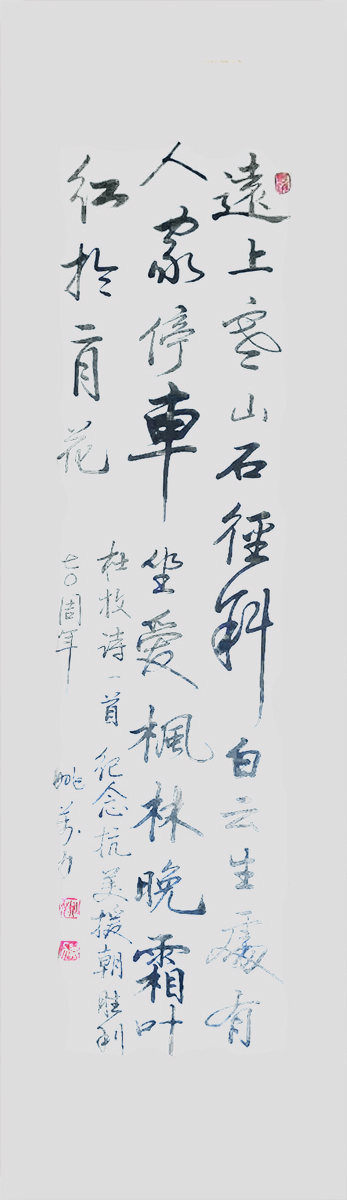 遠上寒山石徑斜白云生處有
人家停車坐愛楓林晚霜叶
红於二月花
杜牧诗一首 纪念抗美援朝胜利
七〇周年
姚